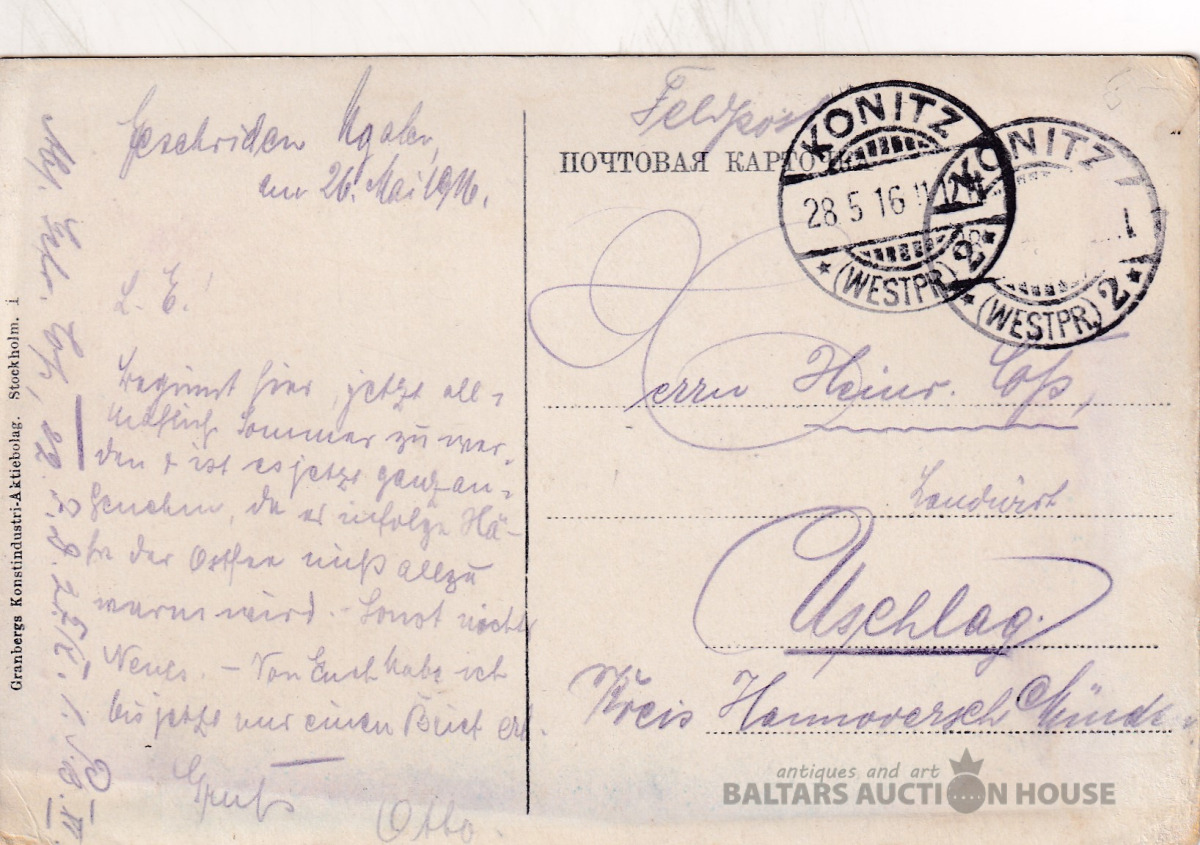 Geschrieben Ugalen,
am 26. Mai 1916.
L. E.!
Beginnt hier jetzt all-
mählich Sommer zu wer-
den & ist es jetzt ganz an-
genehm, da er infolge Nä-
he der Ostsee nicht allzu
warm wird. - Sonst nichts
Neues. - Von Euch habe ich
bis jetzt nur einen Brief erh.
Gruß
Otto.
Granbergs Konstindustri-Aktiebolag. Stockholm. i
Feldpost
ПОЧТОВАЯ КАРТОЧКА
KONITZ
28.5.16
(WESTPR.) 2
KONITZ
(WESTPR.) 2
Herrn Heinr.
Landwirt
Uschlag.
Kreis Hannoversch Münden
antiques and art
BALTARS AUCTION HOUSE